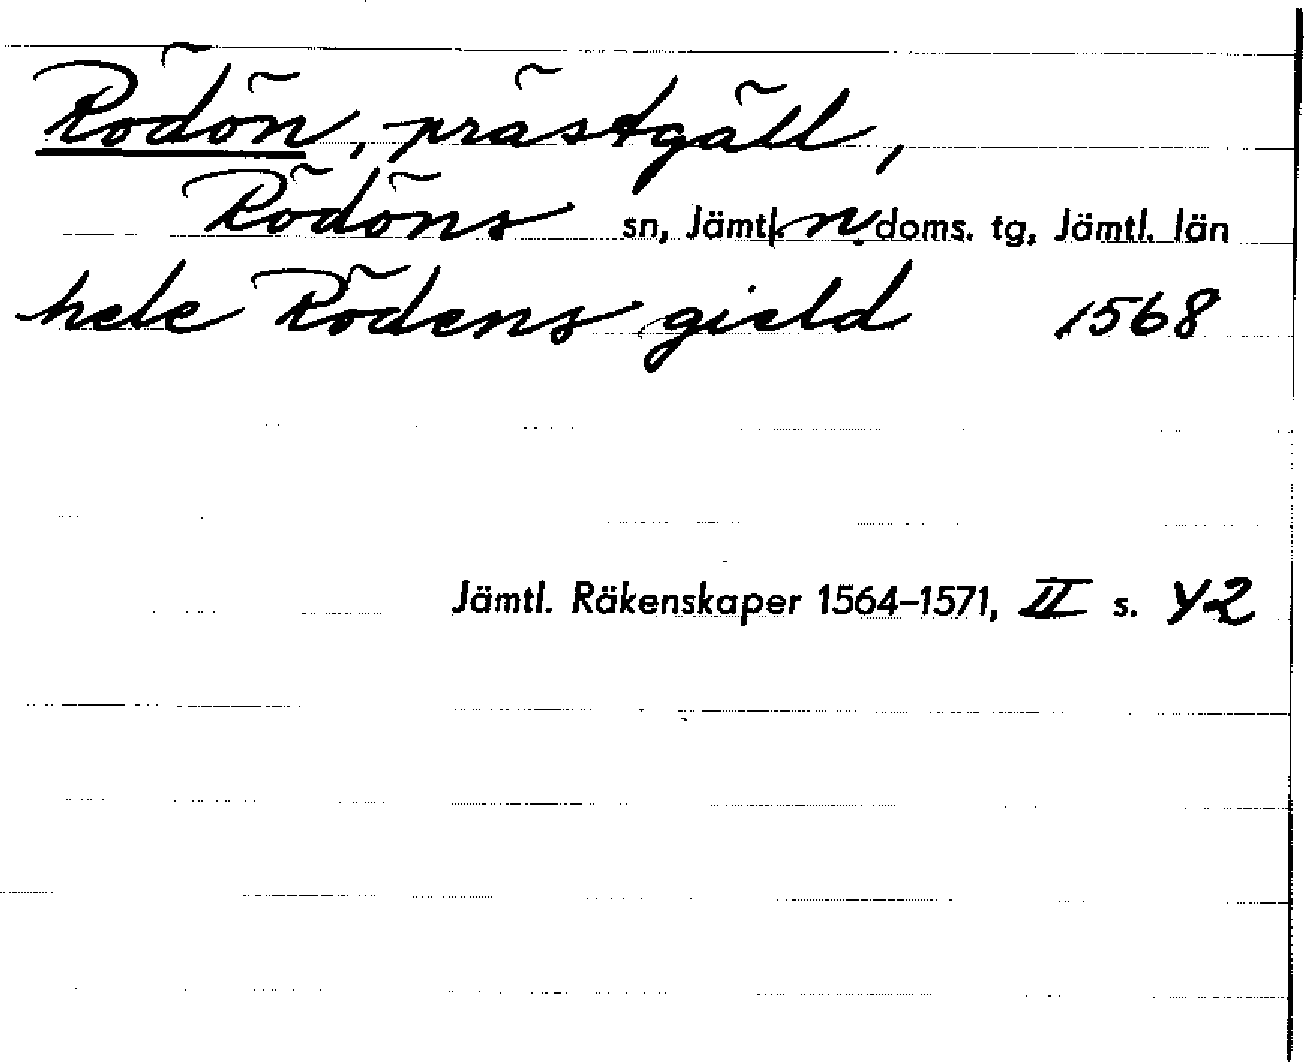 Rödön, prästgäll,
Rödöns sn, Jämtl. n. doms. tg, Jämtl. län
hele Rödens gield 1568
Jämtl. Räkenskaper 1564-1571, II s. 42